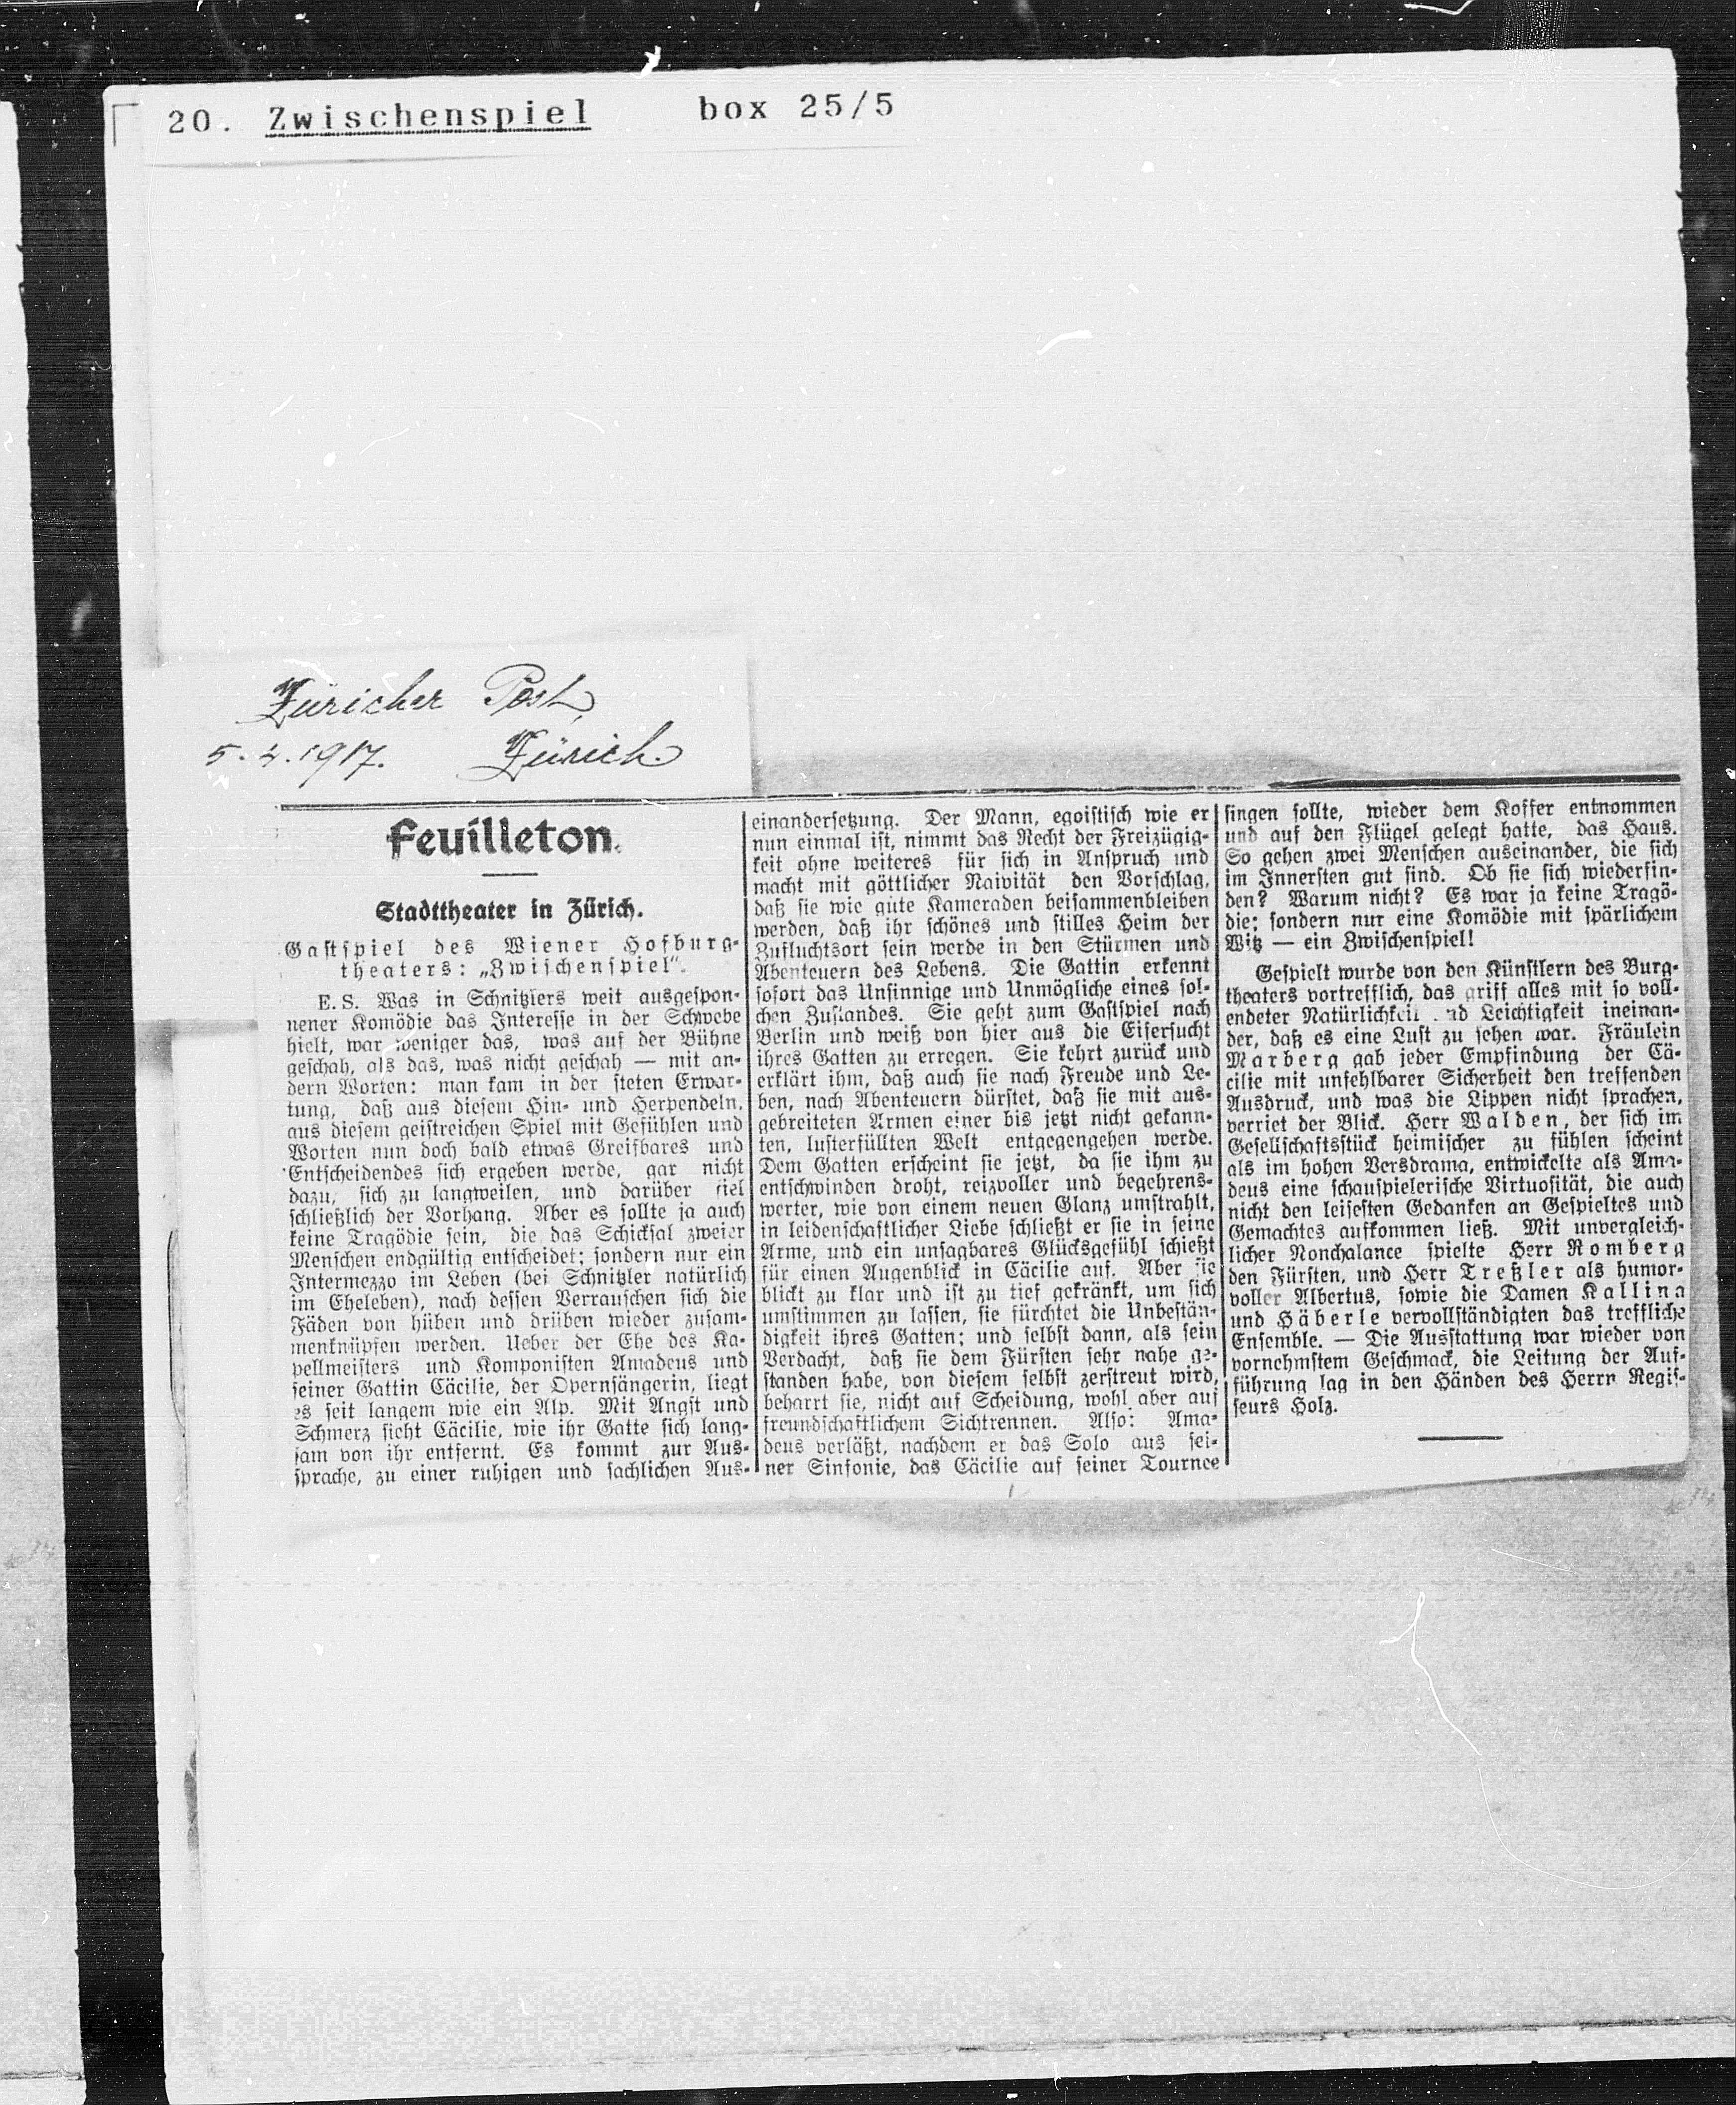 20. Zwischenspiel box 25/5
Züricher Post,
5.4.1917. Zürich.
Feuilleton.
Stadttheater in Zürich.
Gastspiel des Wiener Hofburg-
theaters: „Zwischenspiel“.
E. S. Was in Schnitzlers weit ausgespon-
nener Komödie das Interesse in der Schwebe
hielt, war weniger das, was auf der Bühne
geschah, als das, was nicht geschah — mit an-
dern Worten: man kam in der steten Erwar-
tung, daß aus diesem Hin- und Herpendeln,
aus diesem geistreichen Spiel mit Gefühlen und
Worten nun doch bald etwas Greifbares und
Entscheidendes sich ergeben werde, gar nicht
dazu, sich zu langweilen, und darüber fiel
schließlich der Vorhang. Aber es sollte ja auch
keine Tragödie sein, die das Schicksal zweier
Menschen endgültig entscheidet; sondern nur ein
Intermezzo im Leben (bei Schnitzler natürlich
im Eheleben), nach dessen Verrauschen sich die
Fäden von hüben und drüben wieder zusam-
menknüpfen werden. Ueber der Ehe des Ka-
pellmeisters und Komponisten Amadeus und
seiner Gattin Cäcilie, der Opernsängerin, liegt
es seit langem wie ein Alp. Mit Angst und
Schmerz sieht Cäcilie, wie ihr Gatte sich lang-
sam von ihr entfernt. Es kommt zur Aus-
sprache, zu einer ruhigen und sachlichen Aus-
einandersetzung. Der Mann, egoistisch wie er
nun einmal ist, nimmt das Recht der Freizügig-
keit ohne weiteres für sich in Anspruch und
macht mit göttlicher Naivität den Vorschlag,
daß sie wie gute Kameraden beisammenbleiben
werden, daß ihr schönes und stilles Heim der
Zufluchtsort sein werde in den Stürmen und
Abenteuern des Lebens. Die Gattin erkennt
sofort das Unsinnige und Unmögliche eines sol-
chen Zustandes. Sie geht zum Gastspiel nach
Berlin und weiß von hier aus die Eifersucht
ihres Gatten zu erregen. Sie kehrt zurück und
erklärt ihm, daß auch sie nach Freude und Le-
ben, nach Abenteuern dürstet, daß sie mit aus-
gebreiteten Armen einer bis jetzt nicht gekann-
ten, lusterfüllten Welt entgegengehen werde.
Dem Gatten erscheint sie jetzt, da sie ihm zu
entschwinden droht, reizvoller und begehrens-
werter, wie von einem neuen Glanz umstrahlt,
in leidenschaftlicher Liebe schließt er sie in seine
Arme, und ein unsagbares Glücksgefühl schießt
für einen Augenblick in Cäcilie auf. Aber sie
blickt zu klar und ist zu tief gekränkt, um sich
umstimmen zu lassen, sie fürchtet die Unbestän-
digkeit ihres Gatten; und selbst dann, als sein
Verdacht, daß sie dem Fürsten sehr nahe ge-
standen habe, von diesem selbst zerstreut wird,
beharrt sie, nicht auf Scheidung, wohl aber auf
freundschaftlichem Sichtrennen. Also: Ama-
deus verläßt, nachdem er das Solo aus sei-
ner Sinfonie, das Cäcilie auf seiner Tournee
singen sollte, wieder dem Koffer entnommen
und auf den Flügel gelegt hatte, das Haus.
So gehen zwei Menschen auseinander, die sich
im Innersten gut sind. Ob sie sich wiederfin-
den? Warum nicht? Es war ja keine Tragö-
die; sondern nur eine Komödie mit spärlichem
Witz — ein Zwischenspiel!
Gespielt wurde von den Künstlern des Burg-
theaters vortrefflich, das griff alles mit so voll-
endeter Natürlichkeit und Leichtigkeit ineinan-
der, daß es eine Lust zu sehen war. Fräulein
Marberg gab jeder Empfindung der Cä-
cilie mit unfehlbarer Sicherheit den treffenden
Ausdruck, und was die Lippen nicht sprachen,
verriet der Blick. Herr Walden, der sich im
Gesellschaftsstück heimischer zu fühlen scheint
als im hohen Versdrama, entwickelte als Ama-
deus eine schauspielerische Virtuosität, die auch
nicht den leisesten Gedanken an Gespieltes und
Gemachtes aufkommen ließ. Mit unvergleich-
licher Nonchalance spielte Herr Romberg
den Fürsten, und Herr Treßler als humor-
voller Albertus, sowie die Damen Kallina
und Häberle vervollständigten das treffliche
Ensemble. — Die Ausstattung war wieder von
vornehmstem Geschmack, die Leitung der Auf-
führung lag in den Händen des Herrn Regis-
seurs Holz.